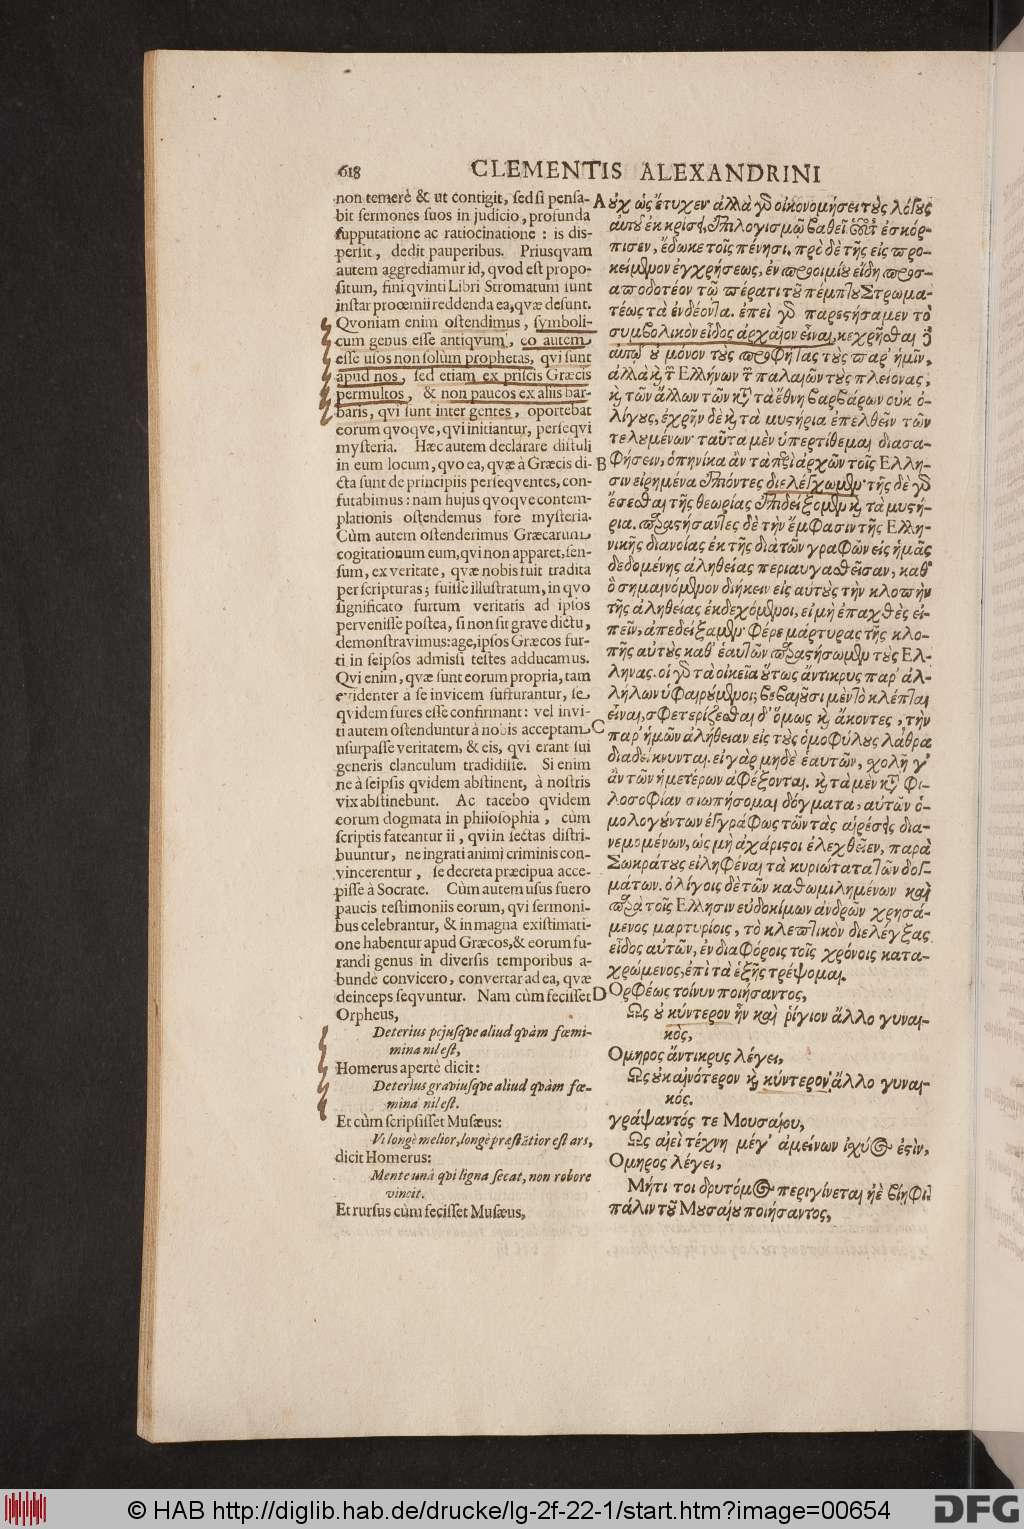 618 CLEMENTIS ALEXANDRINI
non temerè & ut contigit, sed si pensa-
bit sermones suos in judicio, profunda
supputatione ac ratiocinatione : is dis-
persit, dedit pauperibus. Priusqvam
autem aggrediamur id, qvod est propo-
situm, fini qvinti Libri Stromatum sunt
instar procemii reddenda ea, qvæ desunt.
Qvoniam enim ostendimus, symboli-
cum genus esse antiqvum, eo autem
esse usos non solùm prophetas, qvi sunt
apud nos, sed etiam ex priscis Græcis
permultos, & non paucos ex aliis bar-
baris, qvi sunt inter gentes, oportebat
eorum qvoqve, qvi initiantur, perseqvi
mysteria. Hæc autem declarare distuli
in eum locum, qvo ea, qvæ à Græcis di-
cta sunt de principiis perseqventes, con-
futabimus : nam hujus qvoqve contem-
plationis ostendemus fore mysteria.
Cùm autem ostenderimus Græcarum
cogitationum eum, qvi non apparet, sen-
sum, ex veritate, qvæ nobis fuit tradita
per scripturas; fuisse illustratum, in qvo
significato furtum veritatis ad ipsos
pervenisse postea, si non sit grave dictu,
demonstravimus: age, ipsos Græcos fur-
ti in seipsos admissi testes adducamus.
Qvi enim, qvæ sunt eorum propria, tam
evidenter à se invicem suffurantur, se
qvidem fures esse confirmant : vel invi-
ti autem ostenduntur à nobis acceptam
usurpasse veritatem, & eis, qvi erant sui
generis clanculum tradidisse. Si enim
ne à seipsis qvidem abstinent, à nostris
vix abstinebunt. Ac tacebo qvidem
eorum dogmata in philosophia, cùm
scriptis fateantur ii, qvi in sectas distri-
buuntur, ne ingrati animi criminis con-
vincerentur, se decreta præcipua acce-
pisse à Socrate. Cùm autem usus fuero
paucis testimoniis eorum, qvi sermoni-
bus celebrantur, & in magna existimati-
one habentur apud Græcos, & eorum fu-
randi genus in diversis temporibus a-
bundè convicero, convertar ad ea, qvæ
deinceps seqvuntur. Nam cùm fecisset
Orpheus,
Deterius pejusqve aliud qvàm fœmi-
mina nil est,
Homerus apertè dicit:
Deterius graviusqve aliud qvàm fœ-
mina nil est.
Et cùm scripsisset Musæus:
Vt longè melior, longè præstãtior est ars,
dicit Homerus:
Mente unà qvi ligna secat, non robore
vincit.
Et rursus cùm fecisset Musæus,
A οὐχ ὡς ἔτυχεν· ἀλλὰ γὰρ οἰκονομήσει τοὺς λόγους
αὐτοῦ ἐκ κρίσεως, ἐπιλογισμῷ βαθεῖ. οὗτος ἐσκόρ-
πισεν, ἔδωκε τοῖς πένησι. πρὸ δὲ τῆς εἰς προ-
κείμενον ἐγχρήσεως, ἐν προοιμίου εἴδει προσ-
αποδοτέον τῷ πέρατι τοῦ πέμπτου Στρωμα-
τέως τὰ ἐνδέοντα. ἐπεὶ γὰρ παρεστήσαμεν τὸ
συμβολικὸν εἶδος ἀρχαῖον εἶναι, κεχρῆσθαι δὲ
αὐτῷ οὐ μόνον τοὺς προφήτας τοὺς παρ᾽ ἡμῖν,
ἀλλὰ καὶ τῶν Ἑλλήνων τῶν παλαιῶν τοὺς πλείονας,
καὶ τῶν ἄλλων τῶν κατὰ τὰ ἔθνη βαρβάρων οὐκ ὀ-
λίγους, ἐχρῆν δὲ καὶ τὰ μυστήρια ἐπελθεῖν τῶν
τελουμένων· ταῦτα μὲν ὑπερτίθεμαι διασα-
B φήσειν, ὁπηνίκα ἂν τὰ περὶ ἀρχῶν τοῖς Ἕλλη-
σιν εἰρημένα ἐπιόντες διελέγχωμεν· τῆς δὲ γὰρ
ἔσεσθαι τῆς θεωρίας ἐπιδείξομεν καὶ τὰ μυστή-
ρια. παραστήσαντες δὲ τὴν ἔμφασιν τῆς Ἑλλη-
νικῆς διανοίας ἐκ τῆς διὰ τῶν γραφῶν εἰς ἡμᾶς
δεδομένης ἀληθείας περιαυγασθεῖσαν, καθ᾽
ὃ σημαινόμενον διήκειν εἰς αὐτοὺς τὴν κλοπὴν
τῆς ἀληθείας ἐκδεχόμενοι, εἰ μὴ ἐπαχθὲς εἰ-
πεῖν, ἀπεδείξαμεν· φέρε μάρτυρας τῆς κλο-
πῆς αὐτοὺς καθ᾽ ἑαυτῶν παραστήσωμεν τοὺς Ἕλ-
ληνας. οἱ γὰρ τὰ οἰκεῖα οὕτως ἄντικρυς παρ᾽ ἀλ-
λήλων ὑφαιρούμενοι, βεβαιοῦσι μὲν τὸ κλέπται
εἶναι, σφετερίζεσθαι δ᾽ ὅμως καὶ ἄκοντες, τὴν
C παρ᾽ ἡμῶν ἀλήθειαν εἰς τοὺς ὁμοφύλους λάθρα
διαδείκνυνται. εἰ γὰρ μηδὲ ἑαυτῶν, σχολῇ γ᾽
ἂν τῶν ἡμετέρων ἀφέξονται. καὶ τὰ μὲν κατὰ φι-
λοσοφίαν σιωπήσομαι δόγματα, αὐτῶν ὁ-
μολογούντων ἐγγράφως τῶν τὰς αἱρέσεις δια-
νεμομένων, ὡς μὴ ἀχάριστοι ἐλεγχθεῖεν, παρὰ
Σωκράτους εἰληφέναι τὰ κυριώτατα τῶν δογ-
μάτων. ὀλίγοις δὲ τῶν καθωμιλημένων καὶ
παρὰ τοῖς Ἕλλησιν εὐδοκίμων ἀνδρῶν χρησά-
μενος μαρτυρίοις, τὸ κλεπτικὸν διελέγξας
εἶδος αὐτῶν, ἐν διαφόροις τοῖς χρόνοις κατα-
χρώμενος, ἐπὶ τὰ ἑξῆς τρέψομαι.
D Ὀρφέως τοίνυν ποιήσαντος,
Ὣς οὐ κύντερον ἦν καὶ ῥίγιον ἄλλο γυναι-
κὸς,
Ὅμηρος ἄντικρυς λέγει,
Ὣς οὐκ αἰνότερον καὶ κύντερον ἄλλο γυναι-
κός.
γράψαντός τε Μουσαίου,
Ὣς αἰεὶ τέχνη μέγ᾽ ἀμείνων ἰσχύος ἐστὶν,
Ὅμηρος λέγει,
Μήτι τοι δρυτόμος περιγίνεται ἠὲ βίηφι.
πάλιν τοῦ Μουσαίου ποιήσαντος,
© HAB http://diglib.hab.de/drucke/lg-2f-22-1/start.htm?image=00654
DFG